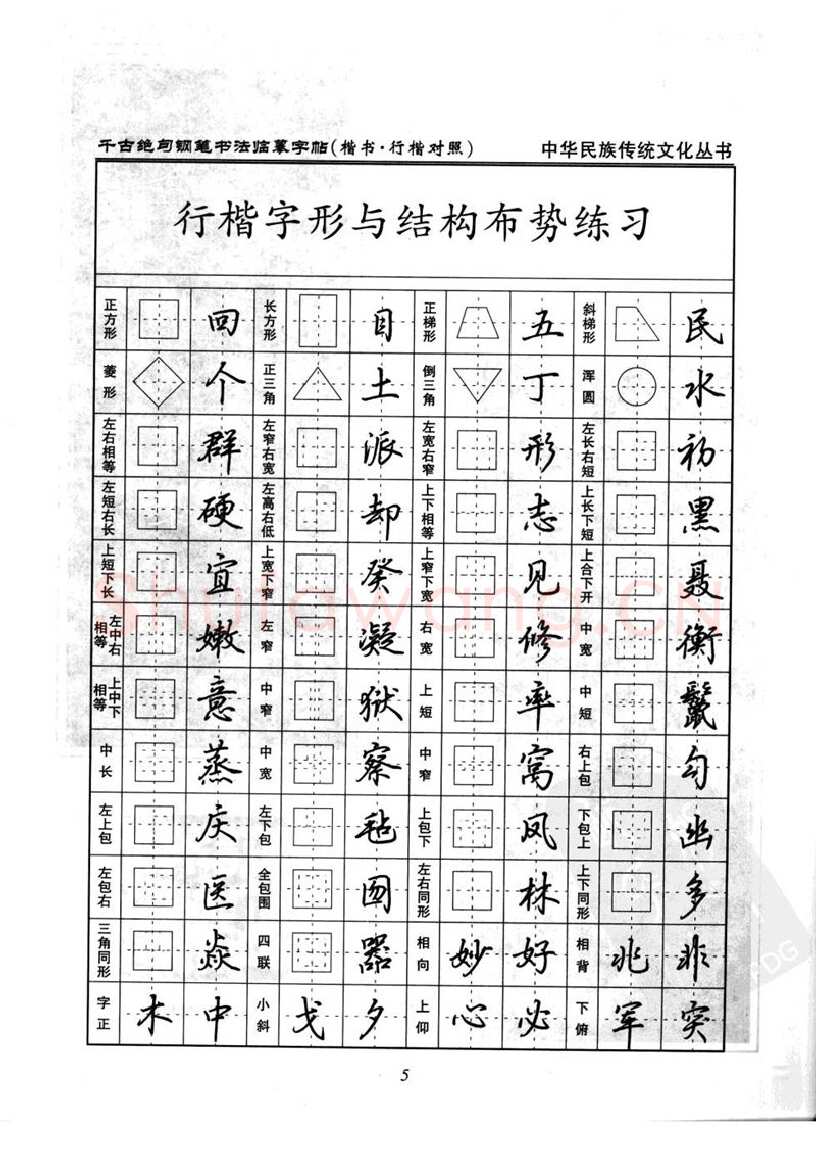 千古绝句钢笔书法临摹字帖(楷书·行楷对照) 中华民族传统文化丛书
行楷字形与结构布势练习
正方形 回 长方形 目 正梯形 五 斜梯形 民
菱形 个 正三角 土 倒三角 丁 浑圆 水
左右相等 群 左窄右宽 派 左宽右窄 形 左长右短 初
左短右长 硬 左高右低 却 上下相等 志 上长下短 黑
上短下长 宜 上宽下窄 癸 上窄下宽 见 上合下开 聂
左中右相等 嫩 左窄 凝 右宽 修 中宽 衡
上中下相等 意 中窄 狱 上短 率 中短 鬣
中长 蒸 中宽 察 中窄 窝 右上包 勾
左上包 庆 左下包 毡 上包下 凤 下包上 幽
左包右 医 全包围 图 左右同形 林 上下同形 多
三角同形 焱 四联 器 相向 妙 好 相背 兆 非
字正 木 中 小斜 戈 夕 上仰 心 必 下俯 军 突
Shufawang.CN
5